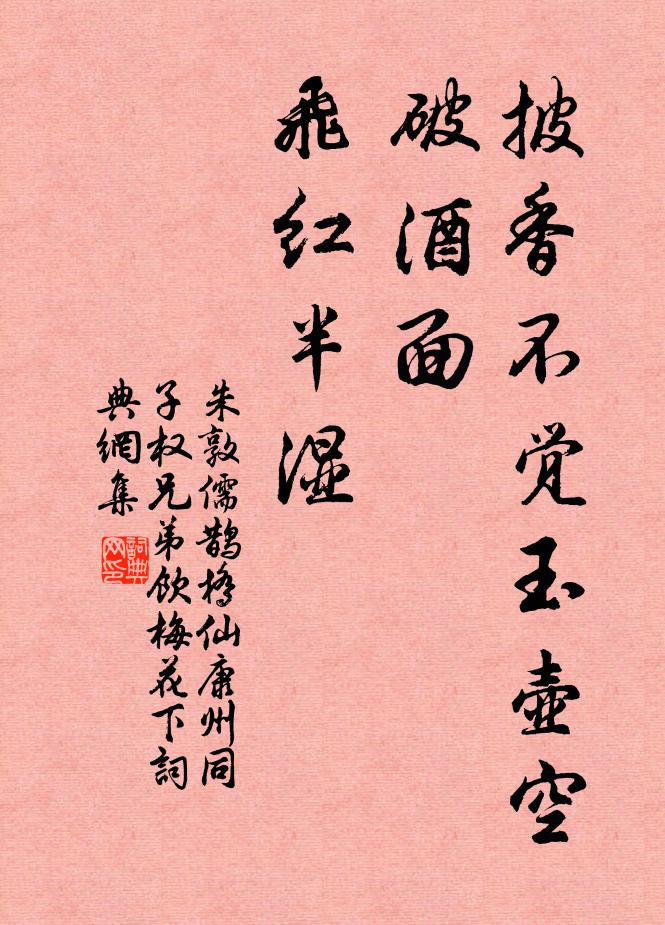 披香不觉玉壶空
破酒面
飛红半湿
朱敦儒鵲橋仙康州同
子权兄弟饮梅花下詞
典網集
詞典
网印